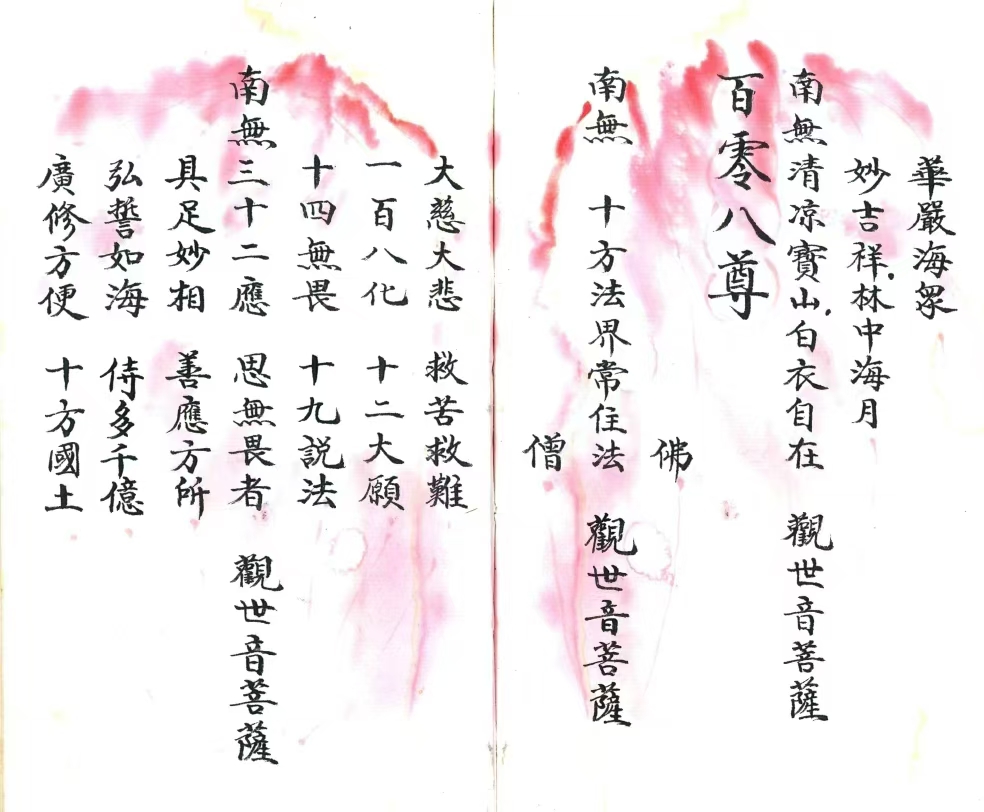 華嚴海眾
妙吉祥.林中海月
南無清凉寶山.白衣自在 觀世音菩薩
百零八尊
佛
南無 十方法界常住法 觀世音菩薩
僧
大慈大悲 救苦救難
一百八化 十二大願
十四無畏 十九説法
南無三十二應 思無畏者 觀世音菩薩
具足妙相 善應方所
弘誓如海 侍多千億
廣修方便 十方國土